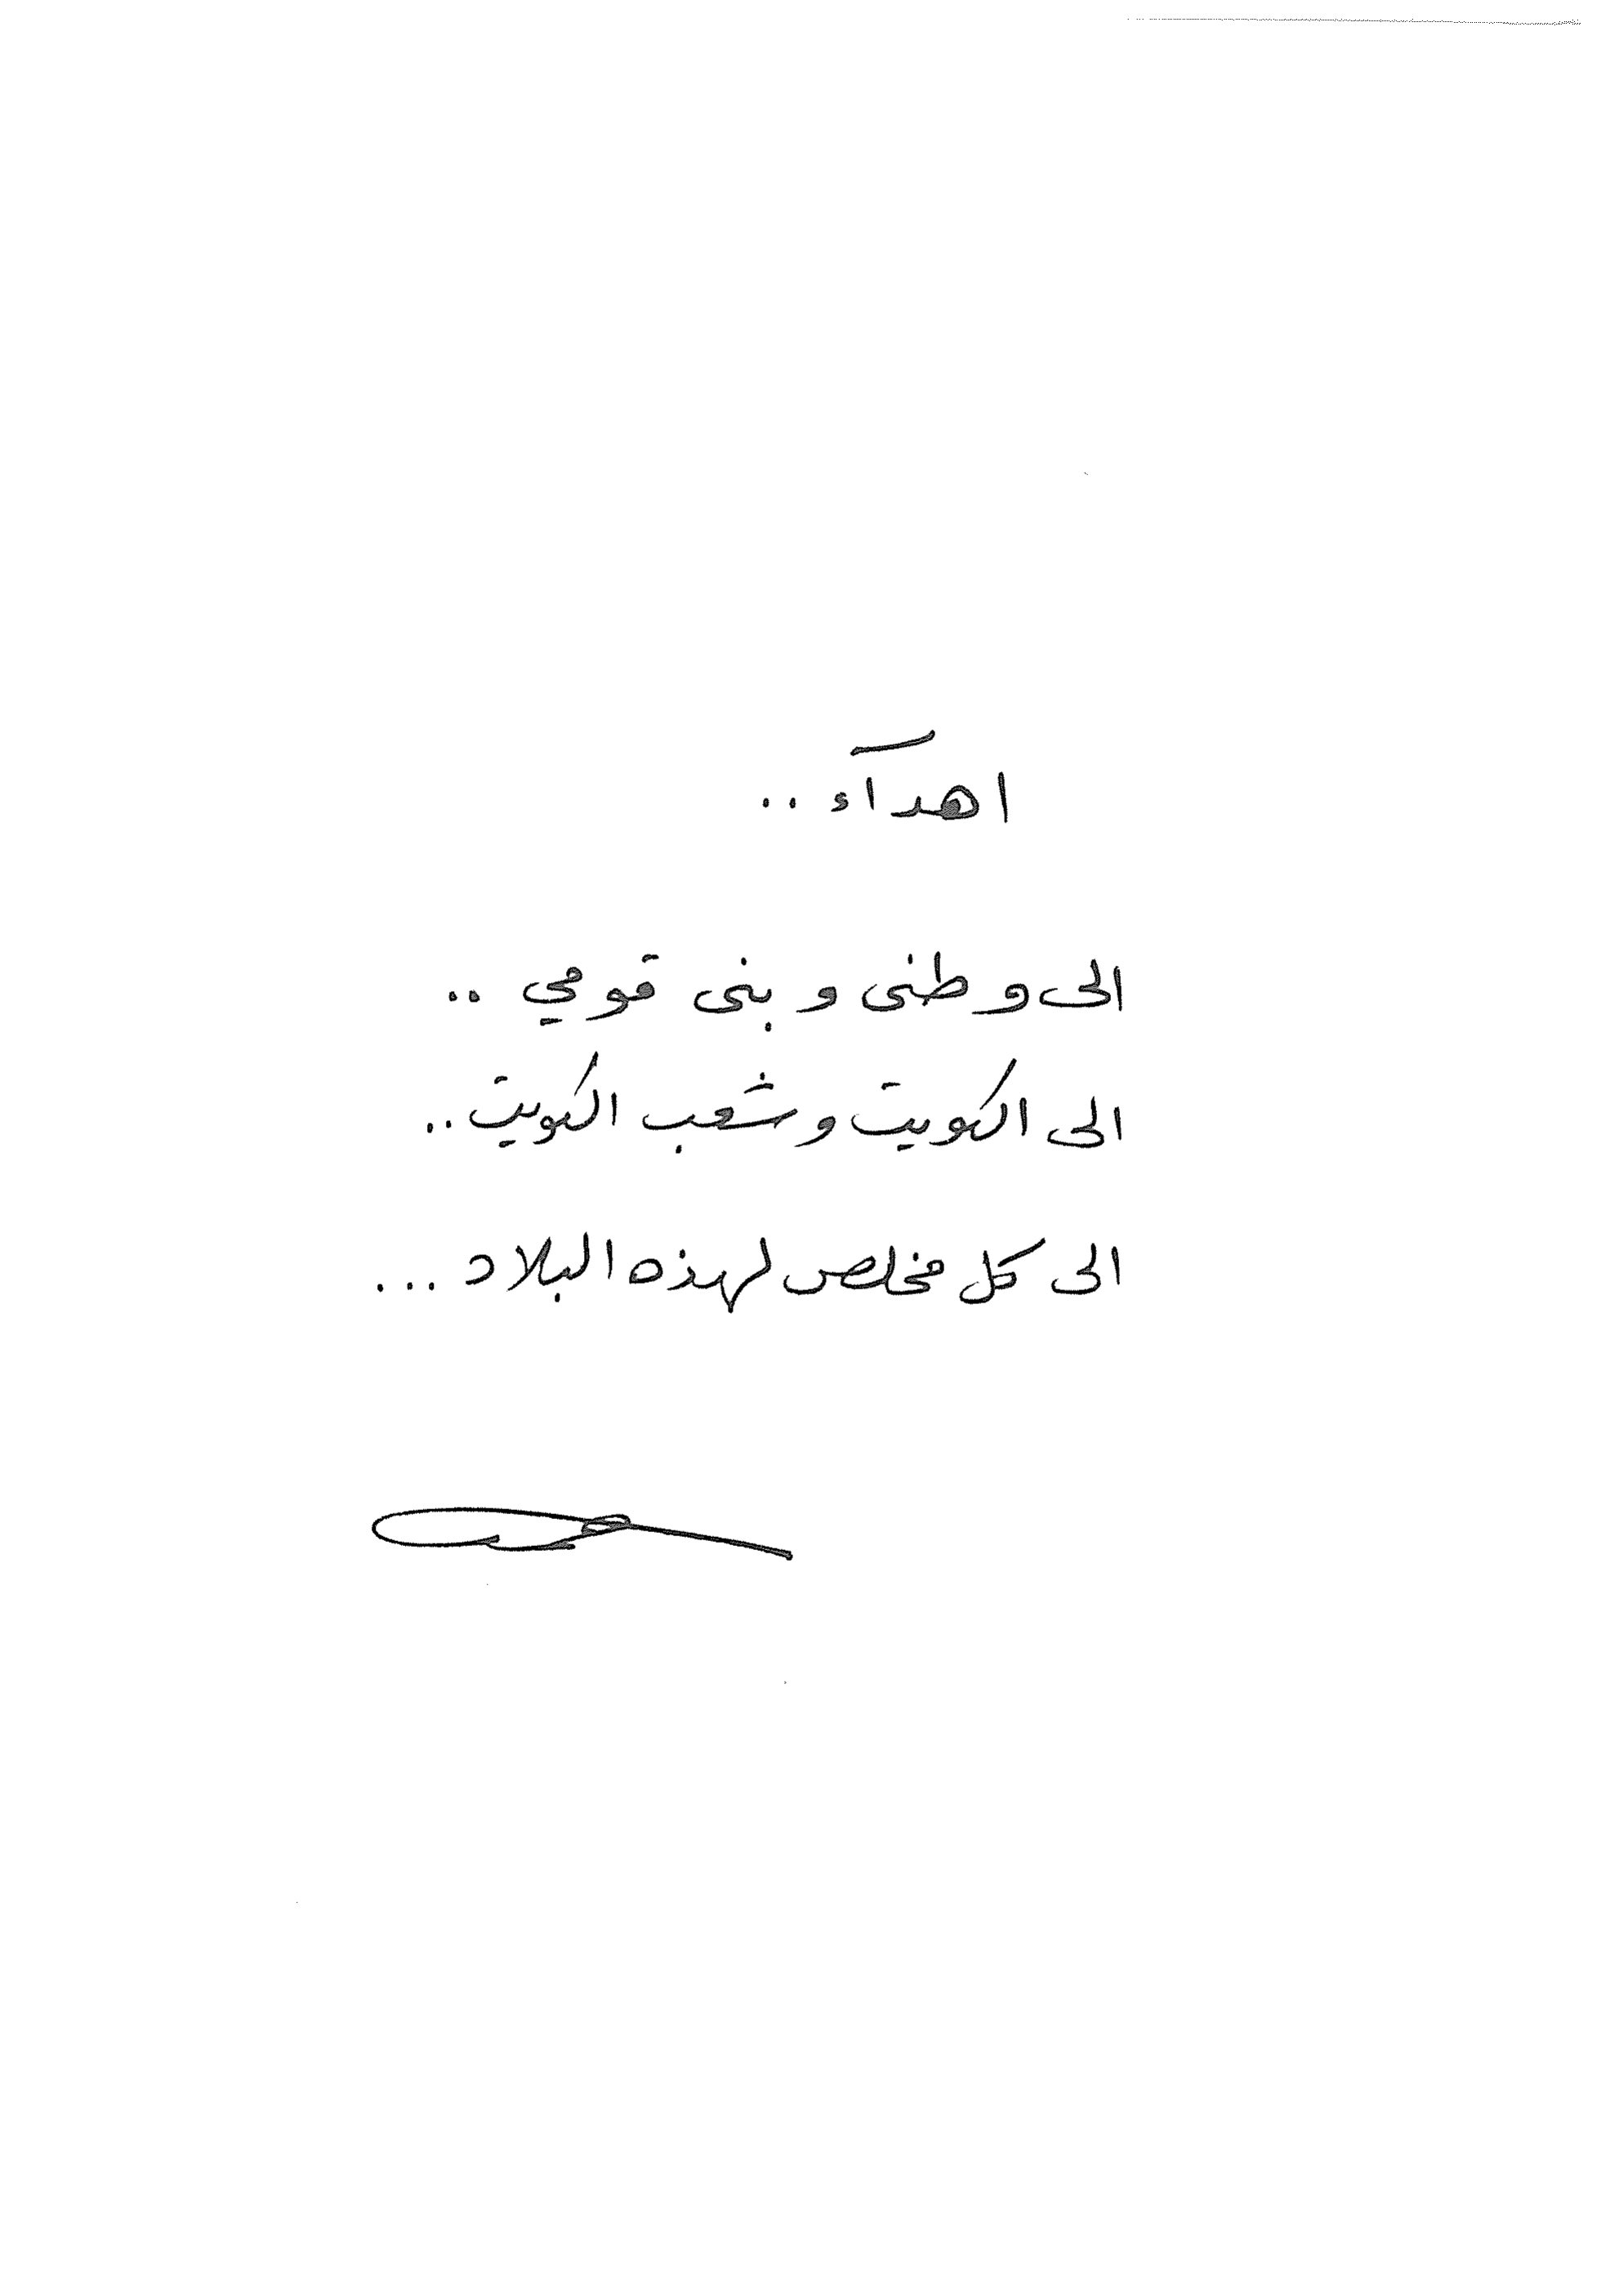 اهدآء ..
الى وطنى و بنى قومي ..
الى الكويت و شعب الكويت ..
الى كل مخلص لهذه البلاد ...